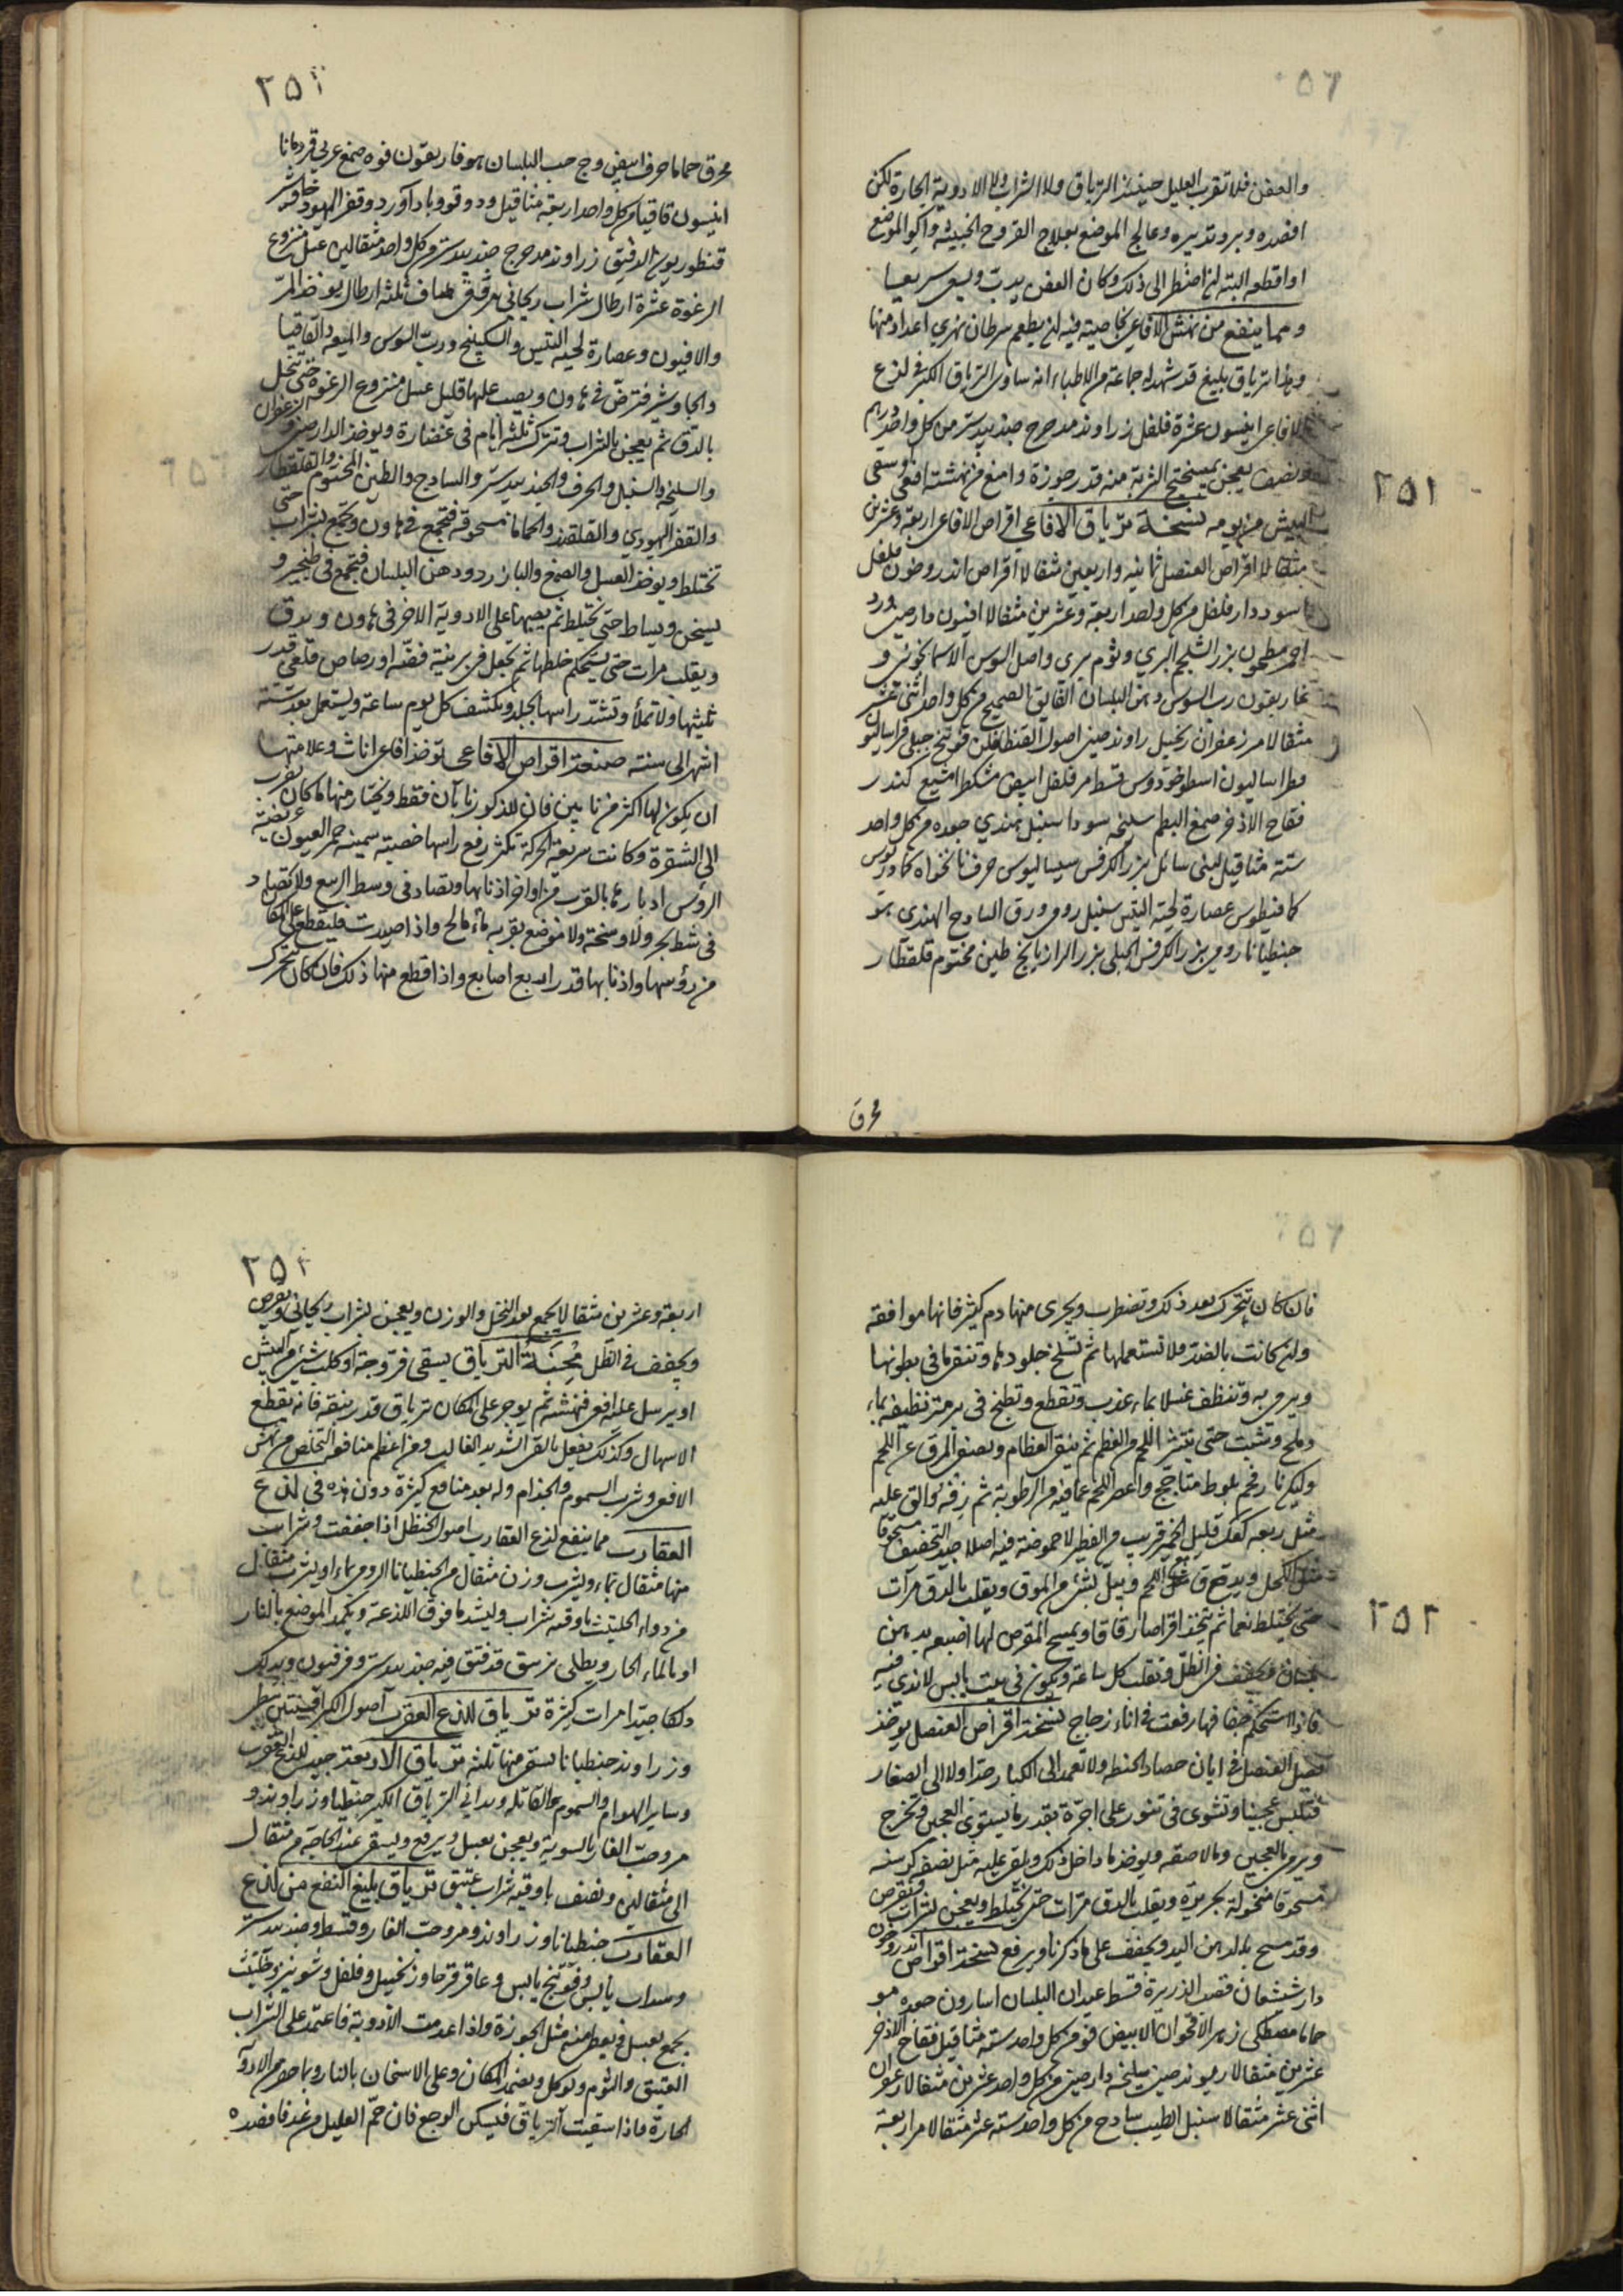 والعفن فلا تقرب العليل حينئذ الترياق ولا الشراب ولا الادوية الحارة لكن
افصده وبرد تدبيره وعالج الموضع بعلاج القروح الخبيثة واكو الموضع
او اقطعه البتة ان اضطر الى ذلك وكان العفن يدب ويسعى سريعا
ومما ينفع من نهش الافاعي بخاصيته فيه ان يطعم سرطان نهري اعداد منها
وهذا ترياق بليغ قد شهد له جماعة من الاطباء انه ساوى الترياق الكبير في لذع
الافاعي انيسون عشرة فلفل زراوند مدحرج جندبيدستر من كل واحد درهم
ونصف يعجن بميبختج الشربة منه قدر جوزة وامنع من نهشته افعى وسقي
البيش من يومه نسخة ترياق الافاعي اقراص الافاعي اربعة وعشرين
مثقالا اقراص العنصل ثمانية واربعين مثقالا اقراص اندروخون فلفل
اسود دار فلفل من كل واحد اربعة وعشرين مثقالا افيون دارصيني ورد
احمر مطحون بزر الشلجم البري وثوم بري واصل السوس الاسمانجوني و
غاريقون رب السوس دهن البلسان الفايق الصحيح من كل واحد اثني عشر
مثقالا مر زعفران زنجبيل راوند صيني اصول القنطافلن فوتنج جبلي فراسيون
فطراساليون اسطوخودوس قسط مر فلفل ابيض مشكطرامشيع كندر
فقاح الاذخر صمغ البطم سليخه سودا سنبل هندي جعده من كل واحد
ستة مثاقيل لبنى سائل بزر الكرفس سيساليوس حرف نانخواه كمادريوس
كمافيطوس عصارة لحية التيس سنبل رومي ورق السادج الهندي
جنطيانا رومي بزر الكرفس الجبلي بزر الرازيانج طين مختوم قلقطار
محرق
٢٥١
محرق حماما حرف ابيض وج حب البلسان هوفاريقون فوه صمغ عربي قردمانا
انيسون قاقيا من كل واحد اربعة مثاقيل ودوقو وباداورد وقفر اليهود جاوشير
قنطوريون الدقيق زراوند مدحرج جندبيدستر من كل واحد مثقالين عسل منزوع
الرغوة عشرة ارطال شراب ريحاني مرقق صاف ثلثه ارطال يوخذ المر
والافيون وعصارة لحية التيس والسكبينج ورب السوس والميعه والقاقيا
والجاوشير فترض في هاون ويصب عليها قليل عسل منزوع الرغوة حتى تنحل
بالدق ثم يعجن بالشراب وتترك ثلثه ايام في غضارة ويوخذ الدارصيني والزعفران
والسليخه والسنبل والحرف والجندبيدستر والسادج والطين المختوم والقلقطار
والقفر اليهودي والقلقند والحماما مسحوقة فتجمع في هاون وتجمع بشراب حتى
تختلط ويوخذ العسل والصمغ والبارزد ودهن البلسان فتجمع في طنجير و
يسخن ويساط حتى تختلط ثم يصبها على الادوية الاخر في هاون ويدق
ويقلب مرات حتى يستحكم خلطها ثم تجعل في برنية فضة او رصاص قلعي قدر
ثلثيها ولا تملأ وتشد راسها بجلد وتكشف كل يوم ساعة ويستعمل بعد ستة
اشهر الى سنته صنعة اقراص الافاعي توخذ افاعي اناث وعلامتها
ان يكون لها اكثر من نابين فان للذكور نابان فقط ويختار منها ما كان يقرب
الى الشقرة وكانت سريعة الحركة تكثر رفع راسها خصبة سمينة حمر العيون عريضة
الرؤس ادبارها بالقرب من اواخر اذنابها وتصاد في وسط الربيع ولا تصاد
في شط بحر ولا وسخة ولا موضع بقربه ماء مالح واذا اصيدت فليقطع على المكان
من رؤسها واذنابها قدر اربع اصابع واذا قطع منها ذلك فان كان يتحرك
٢٥٢
فان كان يتحرك بعد ذلك وتضطرب ويجري منها دم كثير فانها موافقة
وان كانت بالضد فلا تستعملها ثم تسلخ جلودها وتنقى ما في بطونها
ويرمى به وتنظف غسلا بماء عذب وتقطع وتطبخ في برمة نظيفة بماء
وملح وشبت حتى يتبرأ اللحم من العظم ثم ينقى العظام ويصفى المرق عن اللحم
وليكن نار فحم بلوط متاجج واعصر اللحم عما فيه من الرطوبة ثم زفه والق عليه
مثل ربعه كعك قليل الخمير قريب من الفطير لا حموضة فيه اصلا جيد التجفيف مسحوقا
مثل الكحل ويدق مع اللحم ويبل بشئ من المرق ويقلب بالدق مرات
حتى يختلط نعما ثم تتخذ اقراصا رقاقا ويمسح المقرص لها اصبعه بدهن
بلسان ويجفف في الظل وتقلب كل ساعة ويكون في بيت يابس لا ندى فيه
فاذا استحكم جفافها رفعت في اناء زجاج نسخة اقراص العنصل يوخذ
بصل العنصل في ابان حصاد الحنطة ولا تعمد الى الكبار جدا ولا الى الصغار
فتلبس عجينا وتشوى في تنور على اجرة بقدر ما يستوي العجين وتخرج
ويرمى بالعجين وما لاصقه ويوخذ ما داخل ذلك ويلقى عليه مثل نصفه كرسنه
مسحوقا منخولة بحريرة ويقلب بالدق مرات حتى تختلط ويعجن بشراب وتقرص
وقد مسح بالدهن اليد ويجفف على ما ذكرنا ويرفع نسخة اقراص اندروخون
دار شيشعان قصب الذريرة قسط عيدان البلسان اسارون جعده مو
حماما مصطكى زهر الاقحوان الابيض فو من كل واحد ستة مثاقيل فقاح الاذخر
عشرين مثقالا ريوند صيني سليخه دارصيني من كل واحد عشرين مثقالا زعفران
اثني عشر مثقالا سنبل الطيب سادج من كل واحد ستة عشر مثقالا مر اربعة
٢٥٢
اربعة وعشرين مثقالا يجمع بعد النخل والوزن ويعجن بشراب ريحاني ويقرص
ويجفف في الظل محنة الترياق يسقى فروجة او كلب شئ من البيش
او يرسل عليه افعى فنهشته ثم يوجر على المكان ترياق قدر نبقة فانه يقطع
الاسهال وكذلك يفعل بالقئ الشديد الغالب ومن اعظم منافعه التخلص من نهش
الافعى وشرب السموم والجذام وله بعد منافع كثيرة دون هذه في لذع
العقارب مما ينفع لذع العقارب اصول الحنظل اذا جففت وشرب
منها مثقال بماء ويشرب وزن مثقال من الجنطيانا الرومي بماء او يشرب مثقال
من دواء الحلتيت باوقية شراب وليشد ما فوق اللذعة ويكمد الموضع بالنار
او بالماء الحار ويطلى بزيبق قد فتق فيه جندبيدستر وفرفيون ويدلك
دلكا جيدا مرات كثيرة ترياق للذع العقرب اصول الكبر افسنتين
وزراوند جنطيانا يسقى منها ثلثه ترياق الاربعة جيد للذع العقرب
وساير الهوام والسموم القاتلة ويداني الترياق الكبير جنطيانا وزراوند و
مر وحب الغار بالسوية ويعجن بعسل ويرفع ويسقى عند الحاجة من مثقال
الى مثقالين ونصف باوقية شراب عتيق ترياق بليغ النفع من لذع
العقارب جنطيانا وزراوند ومر وحب الغار وقسط وجندبيدستر
وسداب يابس وفوتنج يابس وعاقرقرحا وزنجبيل وفلفل وشونيز وحلتيت
يجمع بعسل ويعطى منه مثل الجوزة واذا عدمت الادوية فاعتمد على الشراب
العتيق والثوم وليوكل ويضمد المكان وعلى الاسخان بالنار وبما حضر من الادوية
الحارة فاذا سقيت الترياق فيسكن الوجع فان حم العليل من غد فافصده